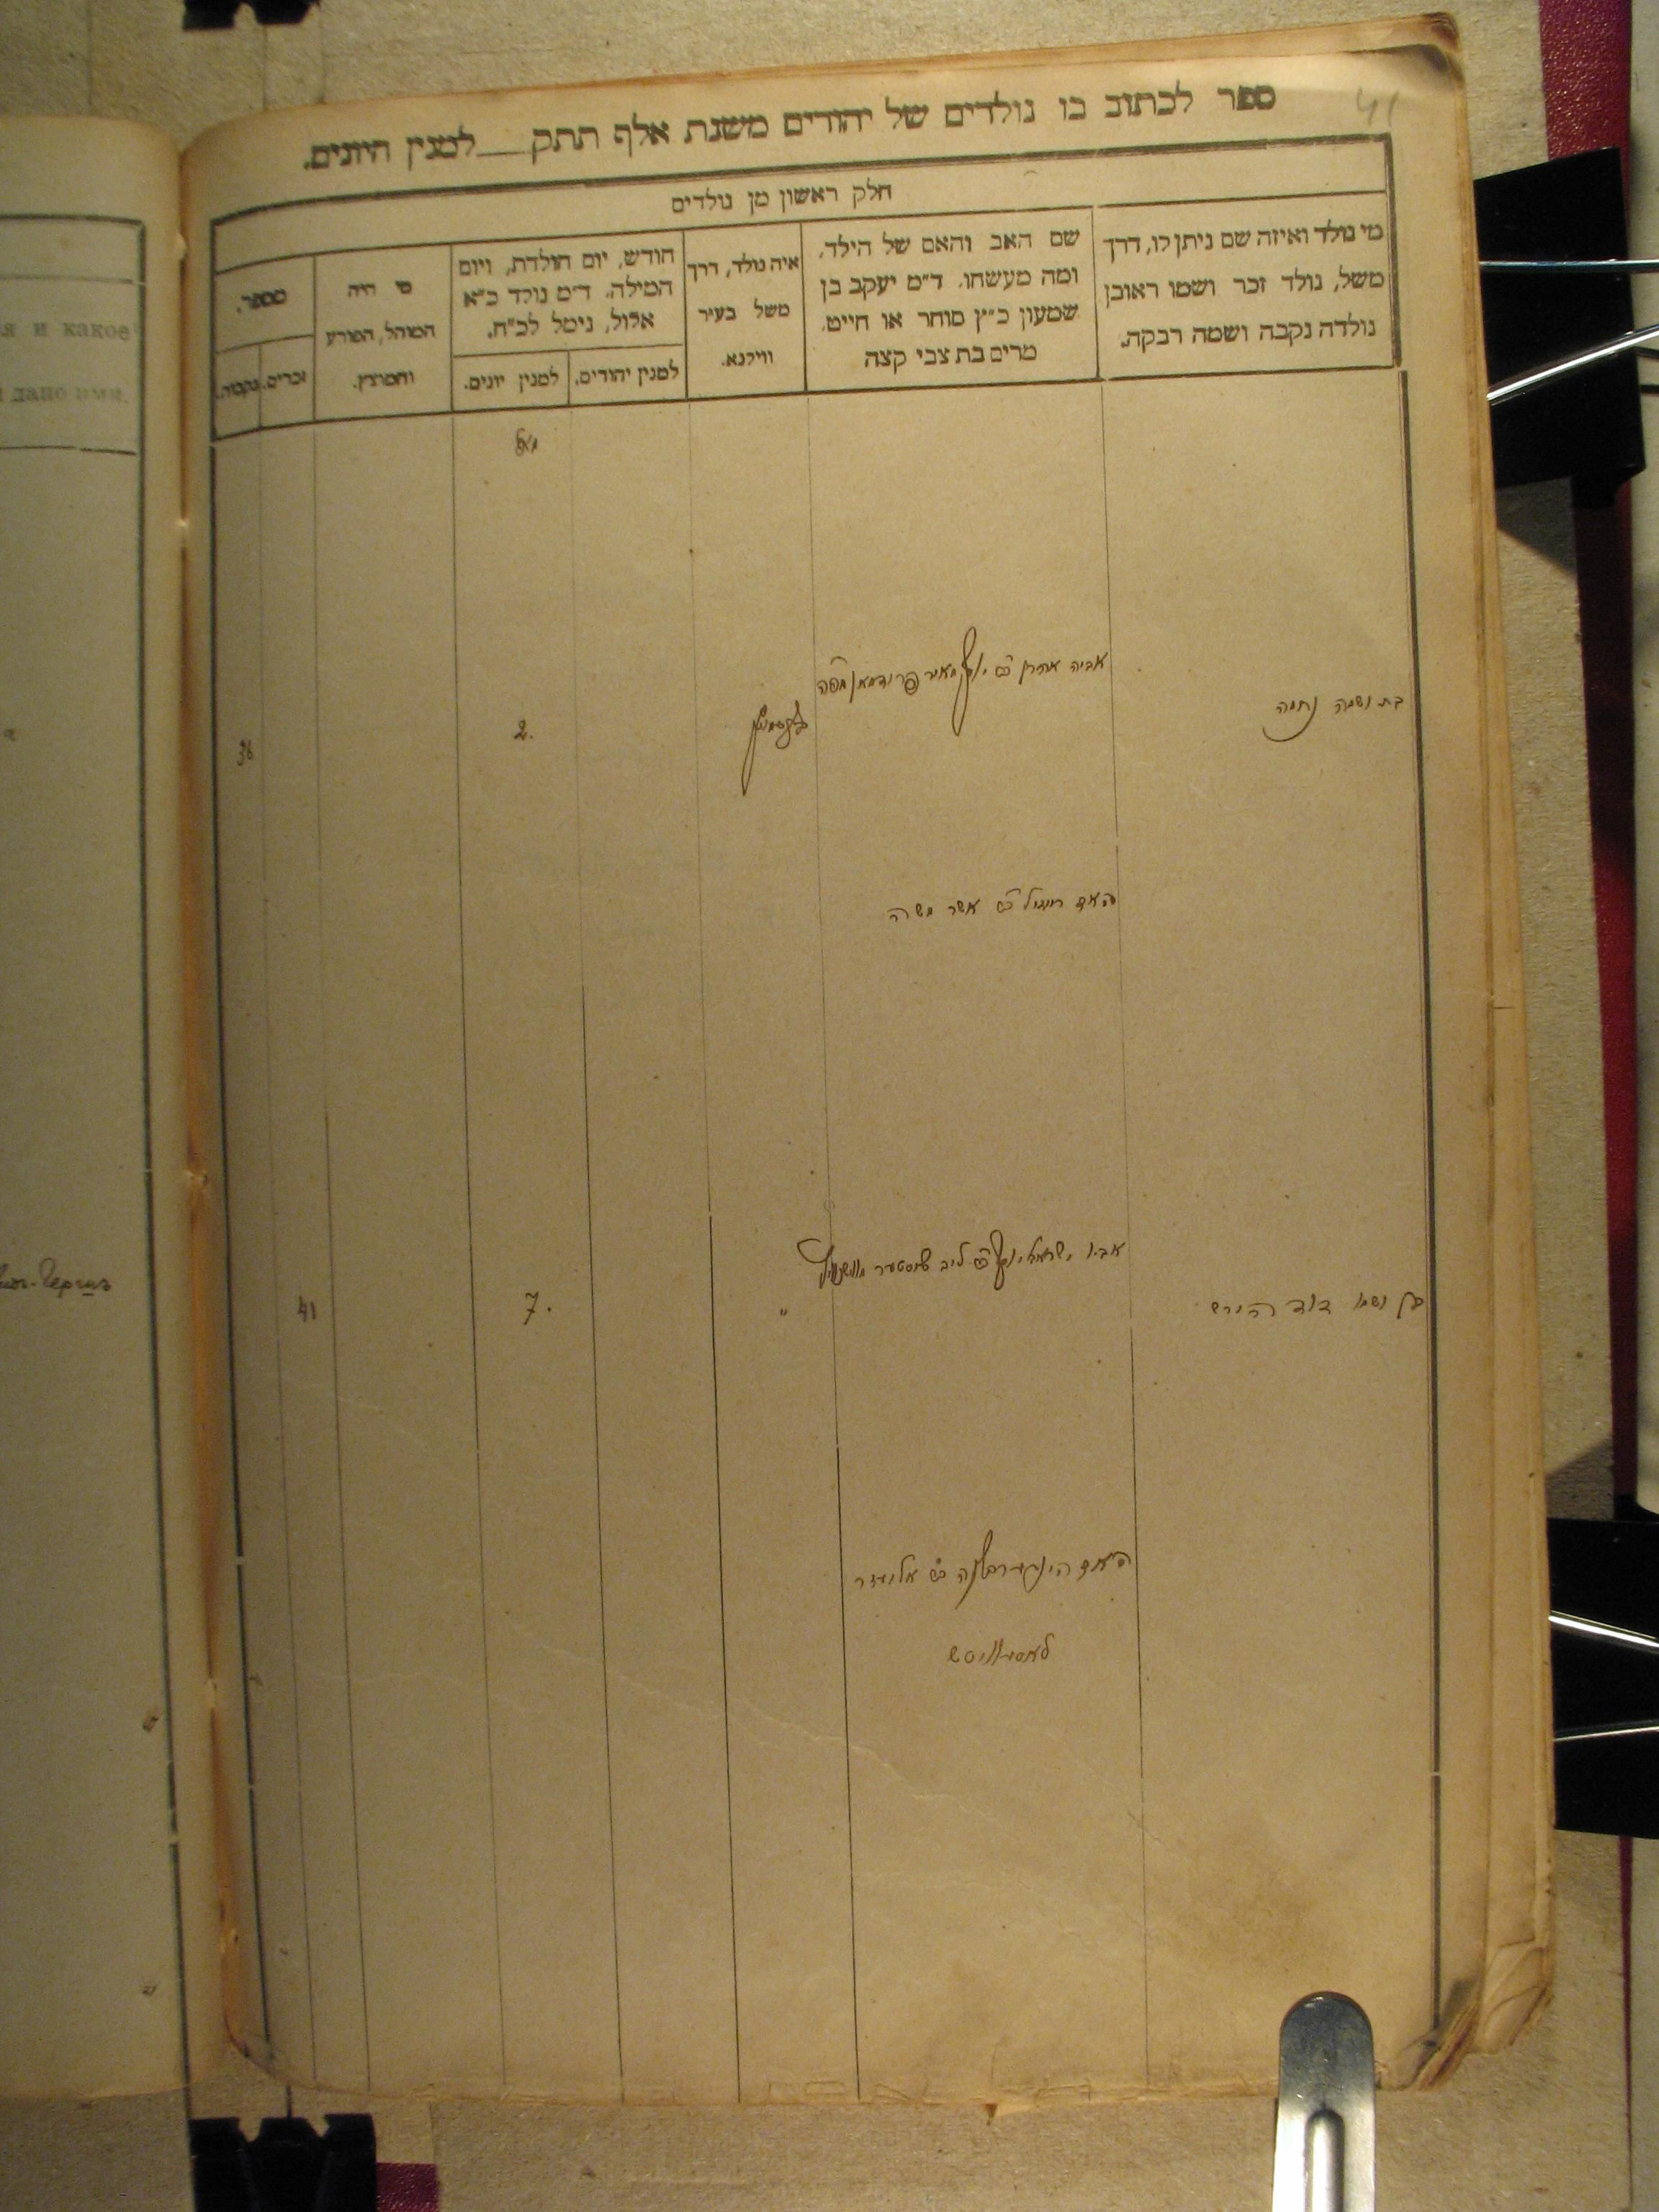 41
ספר לכתוב בו נולדים של יהודים משנת אלף תתק__למנין היונים.
חלק ראשון מן נולדים
מי נולד ואיזה שם ניתן לו, דרך
משל, נולד זכר ושמו ראובן
נולדה נקבה ושמה רבקה.
שם האב והאם של הילד,
ומה מעשהו. ד״מ יעקב בן
שמעון כ״ץ סוחר או חייט,
מרים בת צבי קצה
איה נולד, דרך
משל בעיר
ווילנא.
חודש, יום הולדת, ויום
המילה. ד״מ נולד כ״א
אלול, נימל לכ״ח.
למנין יהודים.
למנין יונים.
מי היה
המוהל, הפורע
והמוצץ.
מספר.
זכרים.
נקבות.
מאי
בת ושמה נחמה
אביה אהרן ב״ר יוסף מאיר פרידמאן
2.
36
האם רייזיל ב״ר אשר משה
בן ושמו דוד הירש
אביו ישראל יוסף ב״ר ליב
״
7.
41
האם ב״ר אליעזר
я и какое
дано имя.